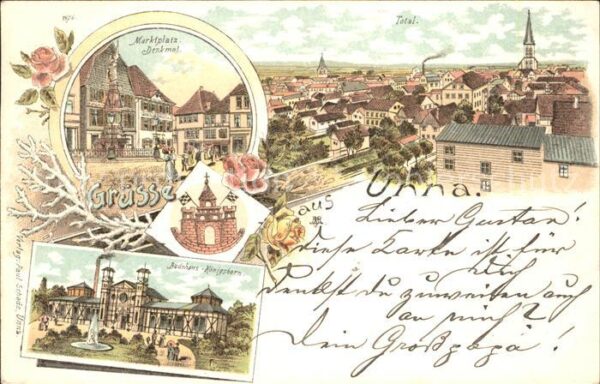 1676
Marktplatz.
Denkmal.
Total.
Grüsse
aus
Unna.
Badehaus Königsborn
Verlag Paul Schade, Unna
Lieber Gustav!
diese Karte ist für
Dich
denkst du zuweilen auch
an mich?
Dein Großpapa!